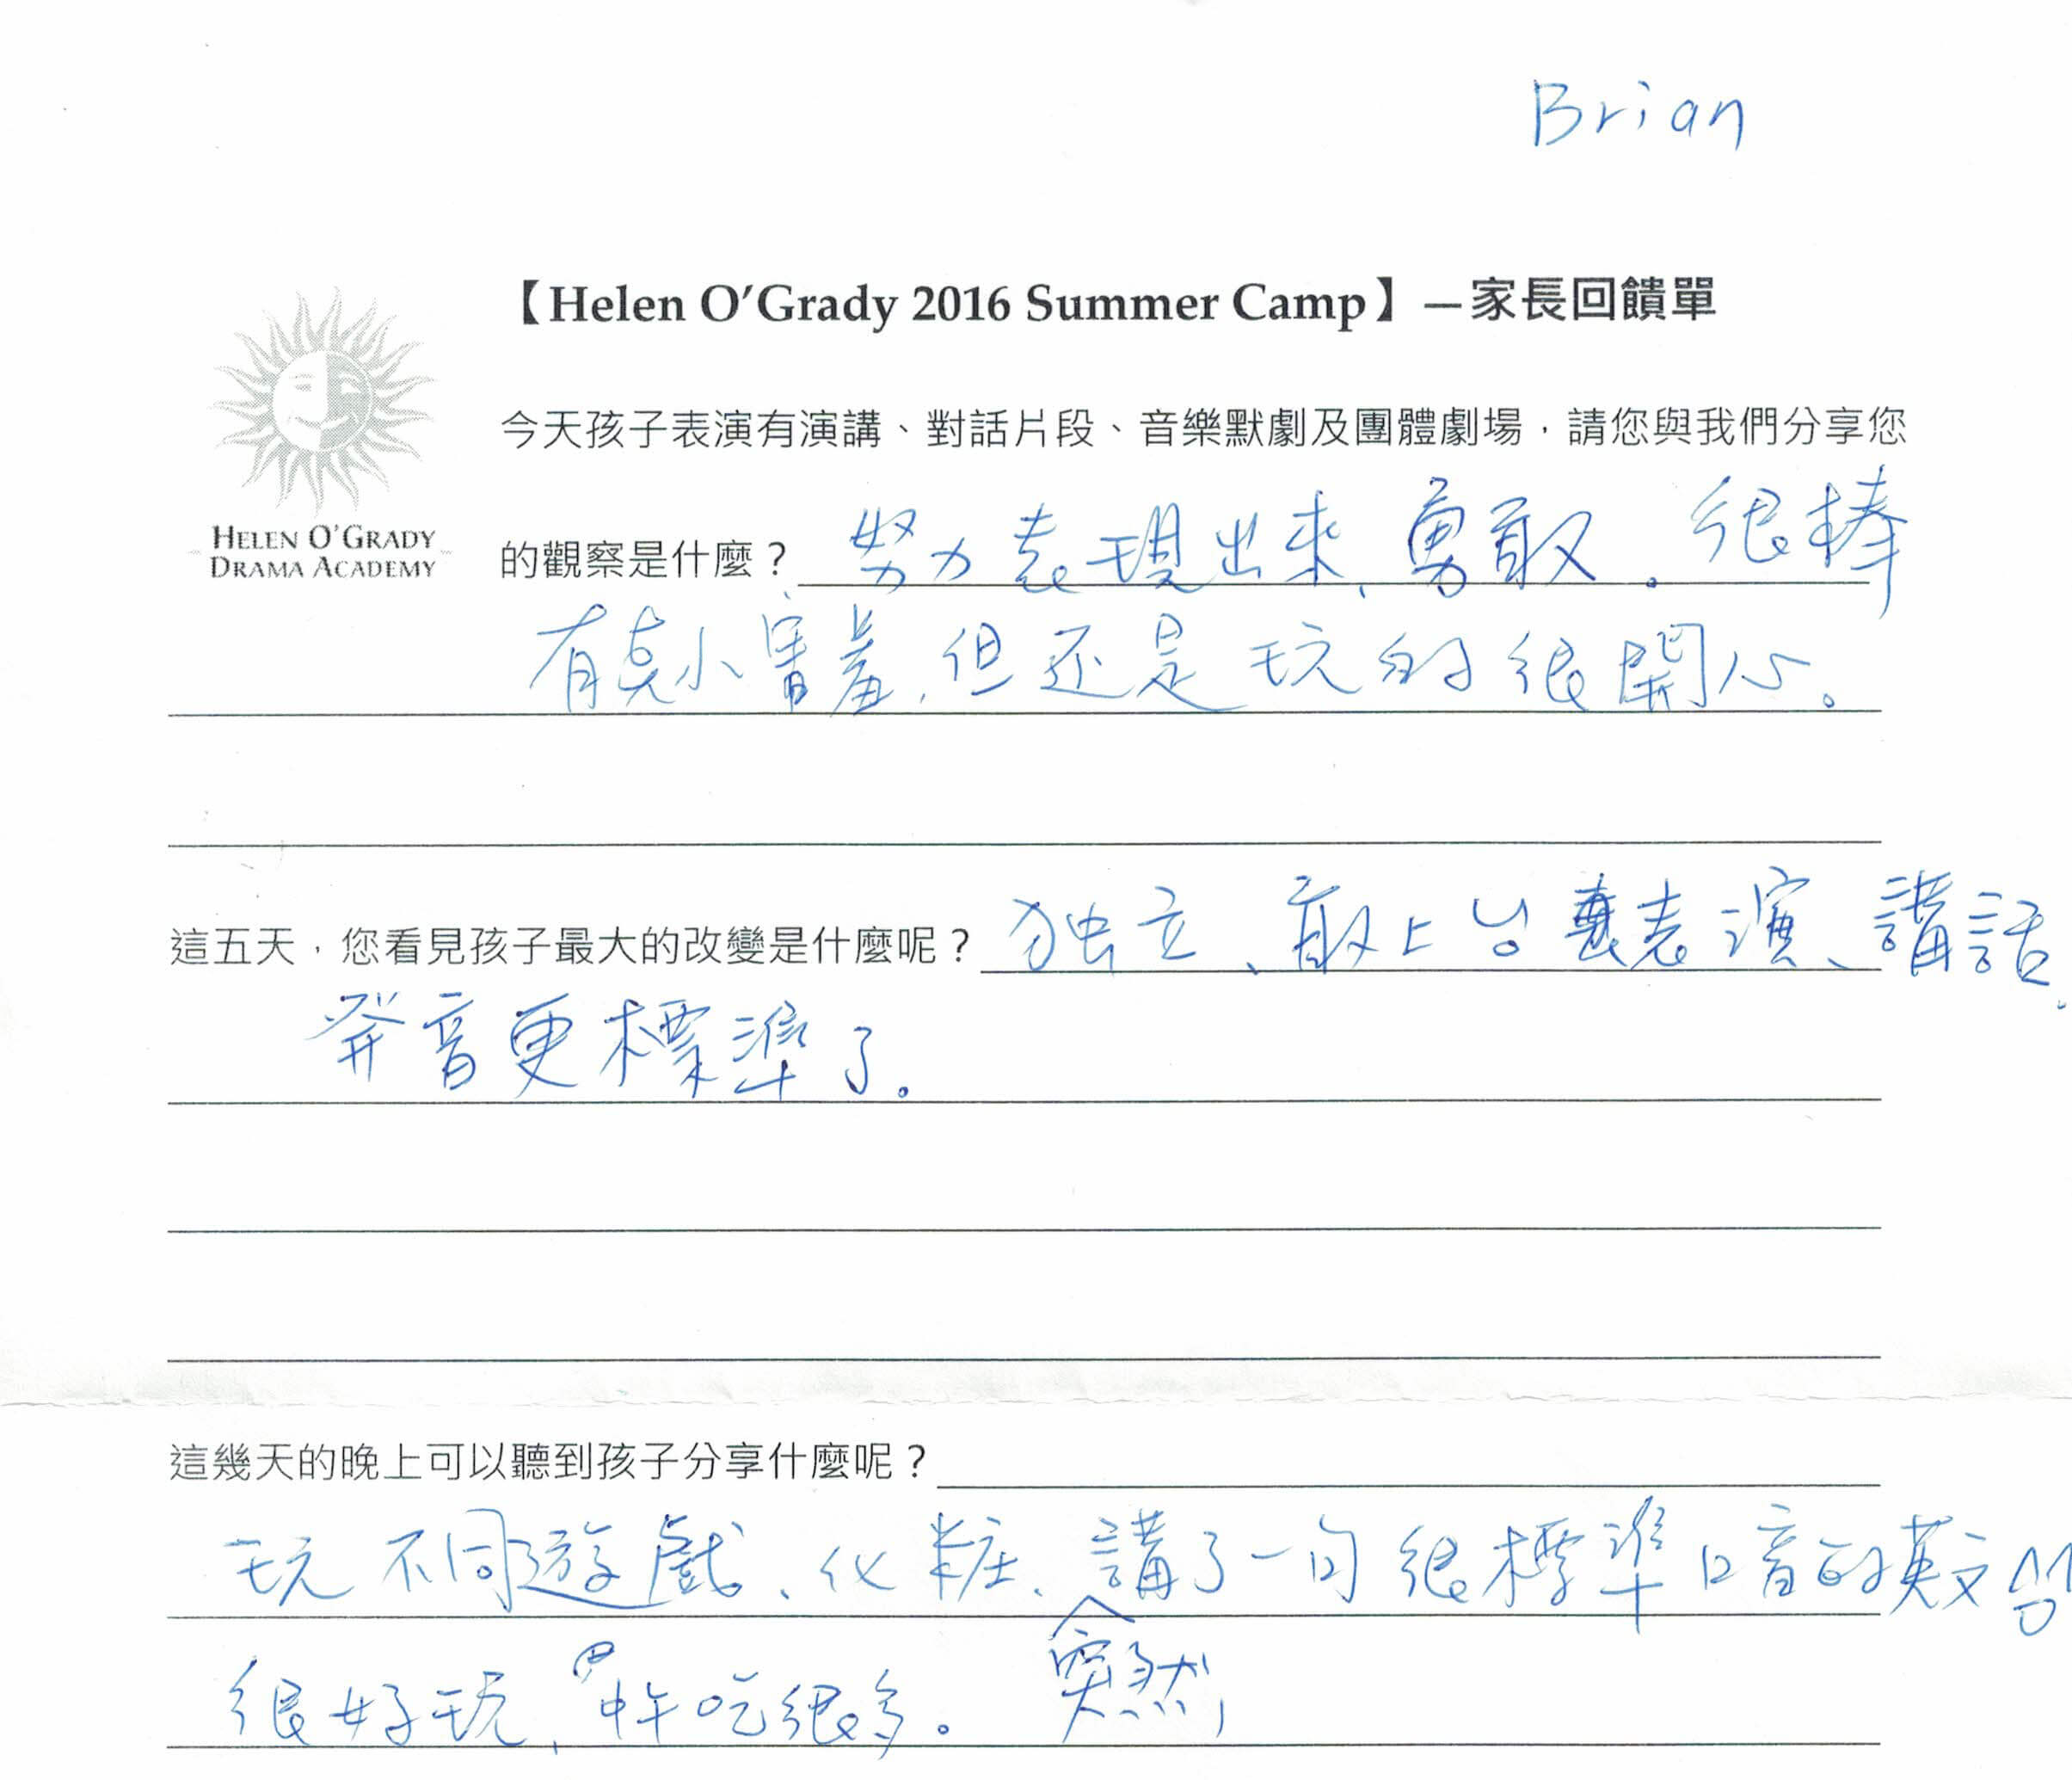 Brian
【Helen O'Grady 2016 Summer Camp】—家長回饋單
HELEN O'GRADY
DRAMA ACADEMY
今天孩子表演有演講、對話片段、音樂默劇及團體劇場，請您與我們分享您
的觀察是什麼？努力表現出來、勇敢。很棒
有点小害羞，但还是玩的很開心。
這五天，您看見孩子最大的改變是什麼呢？独立、敢上台表演、講話，
發音更標準了。
這幾天的晚上可以聽到孩子分享什麼呢？
玩不同遊戲、化粧、講了一句很標準口音的英文
突然，
很好玩，中午吃很多。